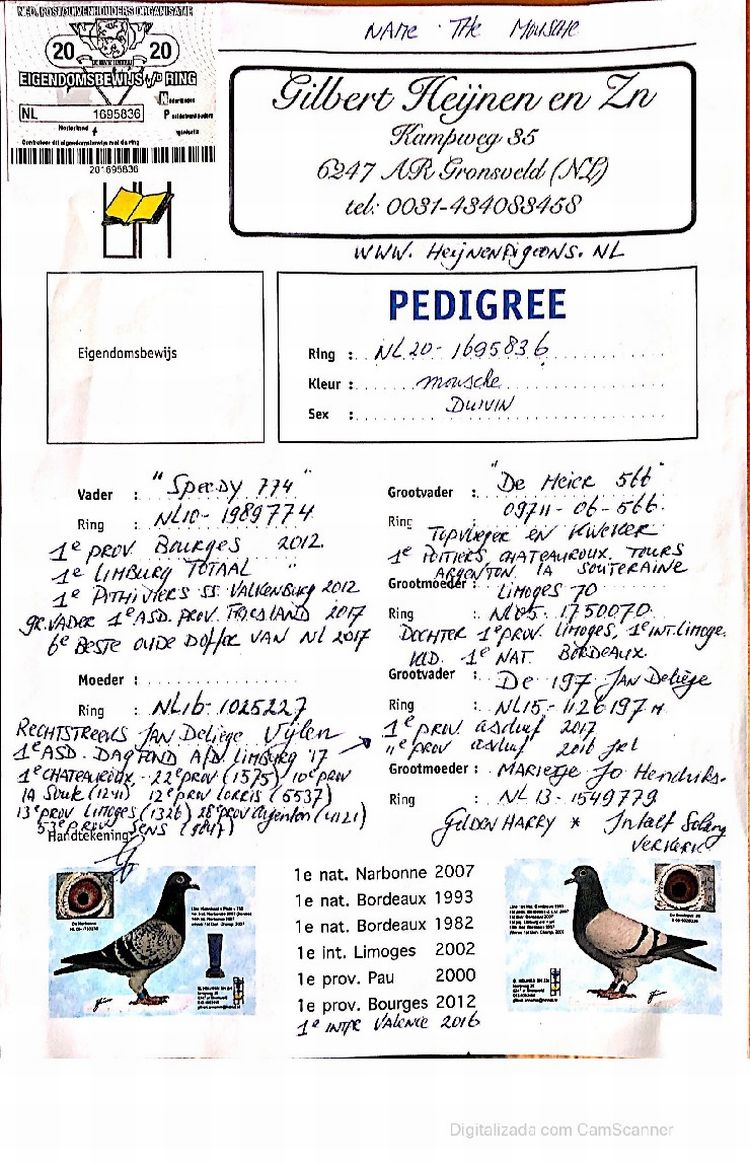 NED. POSTDUIVENHOUDERS ORGANISATIE
20 20
EIGENDOMSBEWIJS v/d RING
NL 1695836
Nederland 4
Controleer dit eigendomsbewijs met de ring
201695836
NAME · THE MOUSCHE
Gilbert Heijnen en Zn
Kampweg 35
6247 AR Gronsveld (NL)
tel: 0031-434083458
WWW. HeijnenPigeons.NL
Eigendomsbewijs
PEDIGREE
Ring : NL20-1695836
Kleur : mousche
Sex : DUIVIN
Vader : "Speedy 774"
Ring : NL10-1989774
1e PROV BOURGES 2012
1e LIMBURG TOTAAL "
1e PITHIVIERS SS VALKENBURG 2012
GR.VADER 1e ASD. PROV. FRIESLAND 2017
6e BESTE OUDE DOFFER VAN NL 2017
Moeder :
Ring : NL16-1025227
RECHTSTREEKS JAN Deliege Vijlen
1e ASD. DAGFOND AFD LIMBURG '17
1e CHATEAUROUX - 22e PROV (1575) 10e PROV
LA Sout (1241) 12e PROV LORRIS (5537)
13e PROV LIMOGES (1326) 28e PROV Argenton (4121)
53e PROV SENS
Handtekening
Grootvader : "De Heier 566"
Ring 09711-06-566
TOPVLIEGER EN KWEKER
1e POITIERS, CHATEAUROUX, TOURS
ARGENTON, LA SOUTERAINE
Grootmoeder : LIMOGES 70
Ring : NL05-1750070
DOCHTER 1e PROV. LIMOGES, 1e INT. LIMOGE.
KLD. 1e NAT. BORDEAUX
Grootvader : De 197 JAN Deliège
Ring : NL15-1126197
1e PROV asduif 2017
11e PROV asduif 2016
Grootmoeder : MARIETJE Jo Hendriks.
Ring : NL 13-1549779
GOLDEN HARRY * Inteelt
VERKERK
1e nat. Narbonne 2007
1e nat. Bordeaux 1993
1e nat. Bordeaux 1982
1e int. Limoges 2002
1e prov. Pau 2000
1e prov. Bourges 2012
1e INTR VALENCE 2016
De Narbonne
Digitalizada com CamScanner